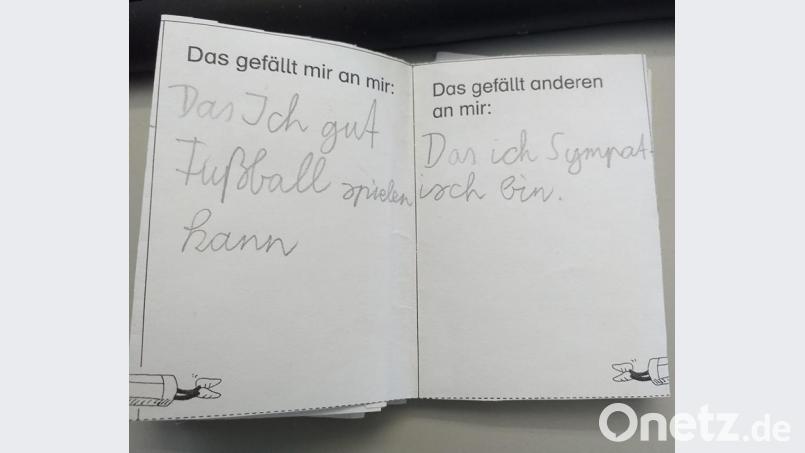 Das gefällt mir an mir:
Das Ich gut
Fußball spielen
kann
Das gefällt anderen
an mir:
Das ich Sympat-
isch bin.
Onetz.de